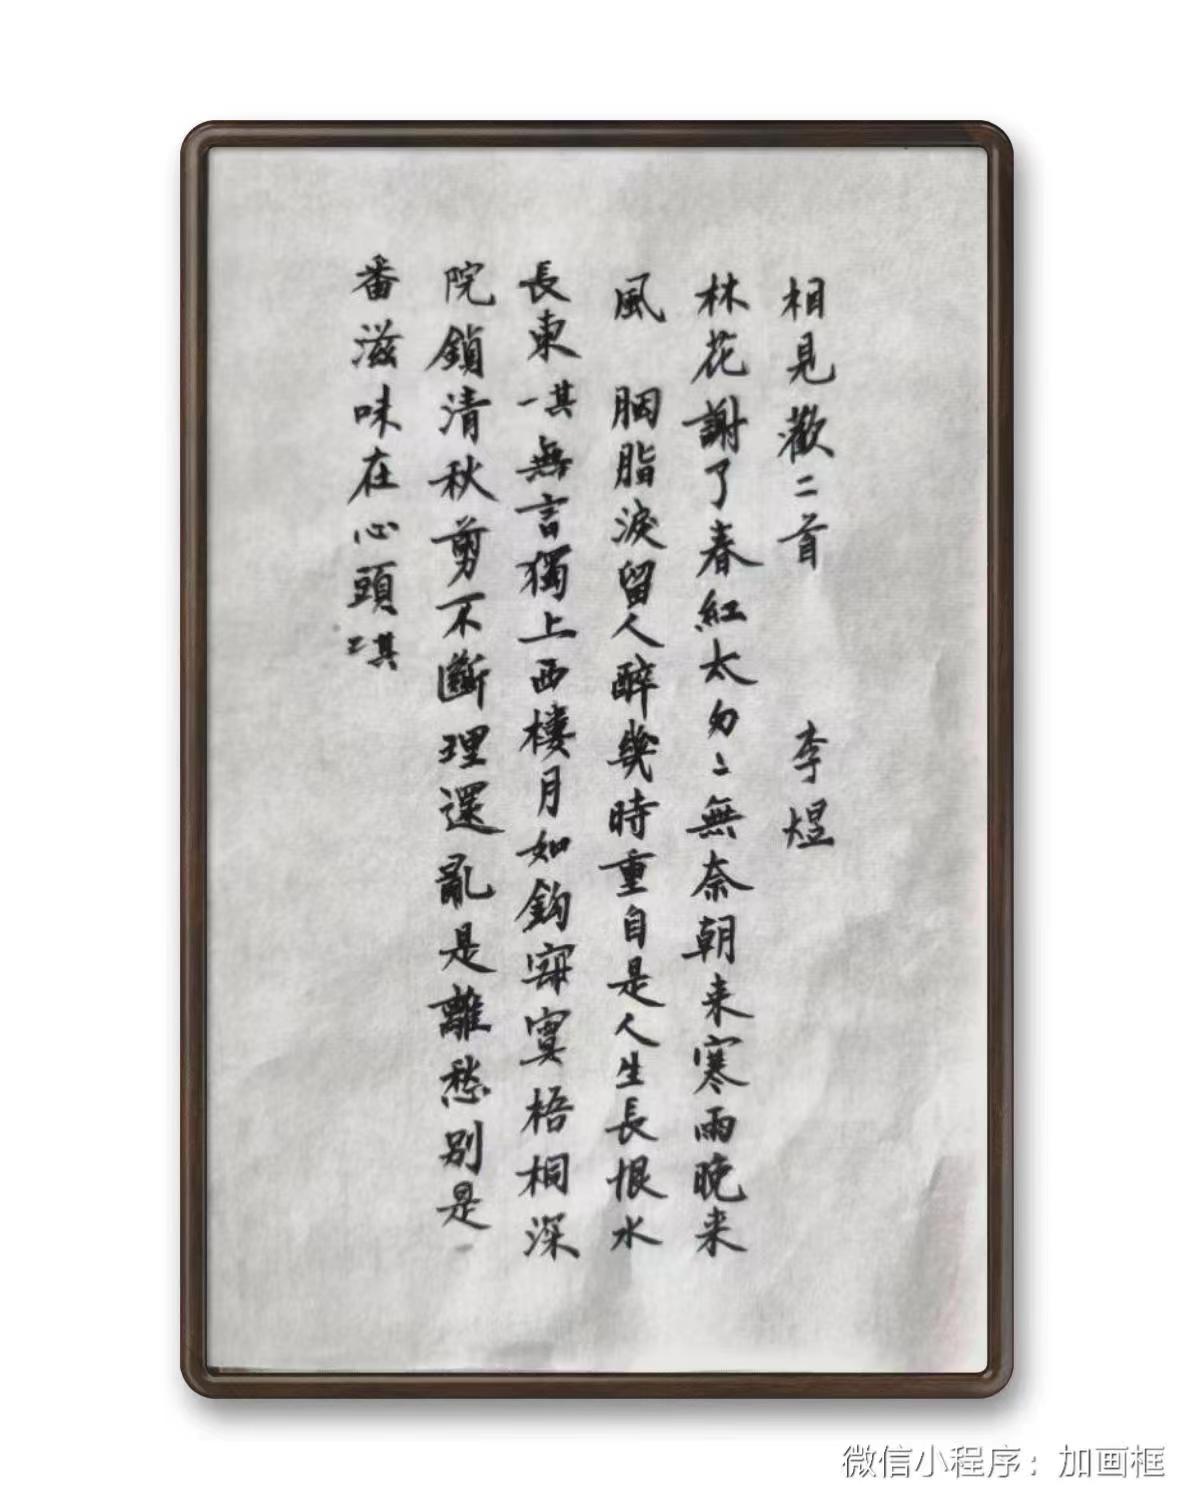 相見歡二首 李煜
林花謝了春紅太匆〻無奈朝来寒雨晚来
風 胭脂淚留人醉幾時重自是人生長恨水
長東 其一 無言獨上西樓月如鈎寂寞梧桐深
院鎖清秋剪不斷理還亂是離愁別是一
番滋味在心頭 其二
微信小程序：加画框